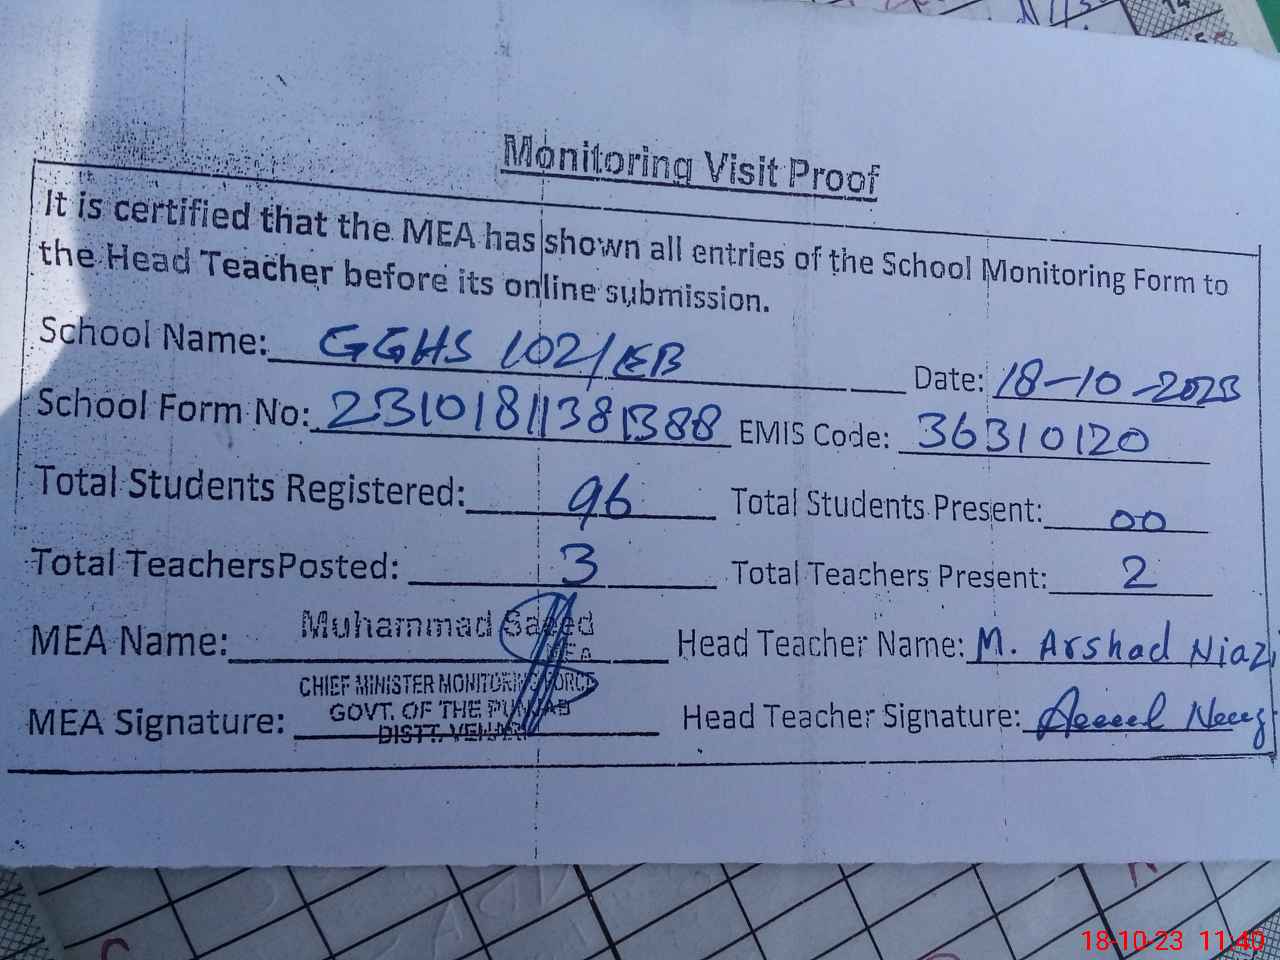 Monitoring Visit Proof
It is certified that the MEA has shown all entries of the School Monitoring Form to
the Head Teacher before its online submission.
School Name: GGHS 102/EB Date: 18-10-2023
School Form No: 23101811381388 EMIS Code: 36310120
Total Students Registered: 96 Total Students Present: 00
Total TeachersPosted: 3 Total Teachers Present: 2
MEA Name: Muhammad Saeed Head Teacher Name: M. Arshad Niazi
MEA
CHIEF MINISTER MONITORING FORCE
GOVT. OF THE PUNJAB
MEA Signature: Head Teacher Signature:
DISTT. VEHARI
18-10-23 11:40